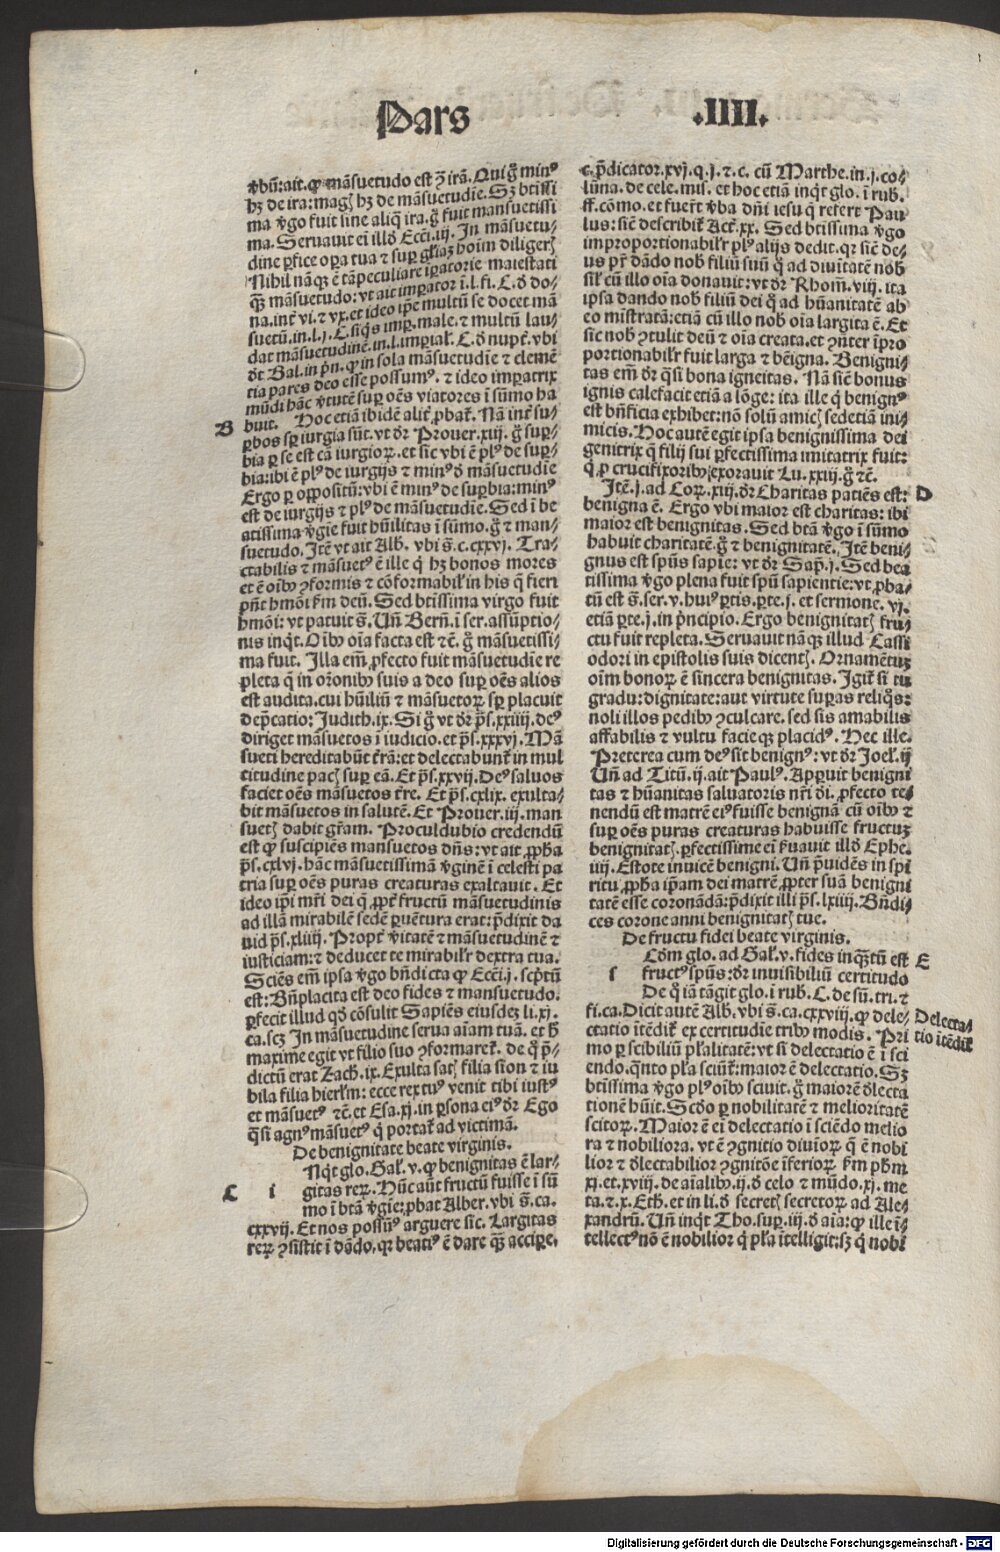 Pars .IIII.
v̄bū: ait. ꝙ mãsuetudo est ↄ̄ irã. Qui g̊ minꝰ
hꝫ de ira: magꝭ hꝫ de mãsuetudie. Sꝫ btissi
ma v̄go fuit sine aliq̃ ira. g̊ fuit mansuetissi
ma. Seruauit ei illď Ecci. iij. In mãsuetu⸗
dine ꝑfice oꝑa tua ⁊ suꝑ gl̃iaꝫ hoĩm diligerꝭ
Nihil nãqꝫ ē tã peculiare iꝑatorie maiestati
q̃ꝫ mãsuetudo: vt ait imꝑator ī. l. fi. C. ď do⸗
na. int̃ vi. ⁊ vx. et ideo ip̃e multũ se docet mã
suetũ. in. l. j. C. siq̃s imꝑ. male. ⁊ multũ lau⸗
dat mãsuetudinē. in. l. imꝑial. C. ď nupt̃. vbi
ďt Bal. in p̃n. ꝙ in sola mãsuetudie ⁊ clemē
tia pares deo esse possumꝰ. ⁊ ideo imꝑatrix
mũdi hãc v̄tutē suꝑ oēs viatores ī sũmo ha
B buit. Hoc etiã ibidē alit̃ ꝓbat̃. Nã int̃ su⸗
ꝑbos sꝑ iurgia sũt. vt ďr Prouer. xiij. g̊ suꝑ⸗
bia ꝑ se est cã iurgioꝝ. et sic vbi ē plꝰ de suꝑ⸗
bia: ibi ē plꝰ de iurgijs ⁊ minꝰ ď mãsuetudie
Ergo ꝑ oppositũ: vbi ē minꝰ de suꝑbia: minꝰ
est de iurgijs ⁊ plꝰ de mãsuetudie. Sed ī be
atissima v̄gie fuit hũilitas ī sũmo. g̊ ⁊ man⸗
suetudo. Itē vt ait Alb̃. vbi s̃. c. cxxvj. Tra⸗
ctabilis ⁊ mãsuetꝰ ē ille q̇ hꝫ bonos mores
et ē oībꝰ ꝯformis ⁊ cōformabil̃r in his q̃ fieri
pñt hmōi s̃m deũ. Sed btissima virgo fuit
hmōi: vt patuit s̃. Uñ Bern̄. ī ser. assũptio⸗
nis inq̇t. Oībꝰ oīa facta est ⁊c̃. g̊ mãsuetissi⸗
ma fuit. Illa em̃ ꝓfecto fuit mãsuetudĩe re
pleta q̃ in or̃onibꝰ suis a deo suꝑ oēs alios
est audita. cui hũiliũ ⁊ mãsuetoꝝ sꝑ placuit
dep̃catio: Judith. ix. Si g̊ vt ďr p̃s. xxiiij. deꝰ
diriget mãsuetos ī iudicio. et p̃s. xxxvj. Mã
sueti hereditabũt t̃rã: et delectabunt̃ in mul
titudine pacꝭ suꝑ eã. Et p̃s. xxvij. Deꝰ saluos
faciet oēs mãsuetos t̃re. Et p̃s. cxlix. exulta⸗
bit mãsuetos in salutē. Et Prouer. iij. man
suetꝭ dabit gr̃am. Proculdubio credendũ
est ꝙ suscipiēs mansuetos dñs: vt ait ꝓp̃ha
p̃s. cxlvj. hãc mãsuetissimã v̄ginē ī celesti pa
tria suꝑ oēs puras creaturas exaltauit. Et
ideo ip̃i mr̃i dei q̃ ꝓpt̃ fructũ mãsuetudinis
ad illã mirabilē sedē ꝑuētura erat: p̃dixit da
uid p̃s. xliiij. Propt̃ v̄itatē ⁊ mãsuetudinē ⁊
iusticiam: ⁊ deducet te mirabil̃r dextra tua.
Sciēs em̃ ipsa v̄go bñdicta ꝙ Ecci. j. scp̃tũ
est: Bñplacita est deo fides ⁊ mansuetudo.
ꝑfecit illud qď cōsulit Sapiēs eiusdeꝫ li. xj.
ca. scꝫ In mãsuetudine serua aiam tuã. et ħ
maxime egit vt filio suo ꝯformaret̃. de q̊ p̃⸗
dictũ erat Zach. ix. Exulta satꝭ filia sion ⁊ iu
bila filia hierl̃m: ecce rex tuꝰ venit tibi iustꝰ
et mãsuetꝰ ⁊c̃. et Esa. xj. in ꝑsona eiꝰ ďr Ego
q̃si agnꝰ mãsuetꝰ q̇ portat̃ ad victimã.
De benignitate beate virginis.
Nqt̃ glo. Gal̃. v. ꝙ benignitas ē lar⸗
C i gitas reꝝ. Hũc aũt fructũ fuisse ī sũ
mo ī btã v̄gie: ꝓbat Alber. vbi s̃. ca.
cxxvij. Et nos possũꝰ arguere sic. Largitas
reꝝ ꝯsistit ī dãdo. qꝛ beatiꝰ ē dare q̃ꝫ accipe.
c. p̃dicator. xvj. q. j. ⁊. c. cũ Marthe. in. j. co⸗
lũna. de cele. mis. et hoc etiã inq̇t glo. ī rub.
ff. cōmo. et fuer̃t v̄ba dñi iesu q̃ refert Pau
lus: sic̃ describit̃ Act̃. xx. Sed btissima v̄go
improportionabil̃r plꝰ alijs dedit. qꝛ sic̃ de⸗
us pr̃ dãdo nob̃ filiũ suũ q̊ ad diuĩtatē nob̃
sil̃ cũ illo oīa donauit: vt ďr Rhom̃. viij. ita
ipsa dando nob̃ filiũ dei q̊ ad hũanitatē ab
eo mistratã: etiã cũ illo nob̃ oīa largita ē. Et
sic nob̃ ꝯtulit deũ ⁊ oīa creata. et ꝯn̄ter īpro
portionabil̃r fuit larga ⁊ bēigna. Benigni⸗
tas em̃ ďr q̃si bona igneitas. Nã sic̃ bonus
ignis calefacit etiã a lōge: ita ille q̇ benignꝰ
est bñficia exhibet: nō solũ amicꝭ sed etiã ini⸗
micis. Hoc autē egit ipsa benignissima dei
genitrix q̃ filij sui ꝑfectissima imitatrix fuit:
q̇ ꝓ crucifixoribꝰ exorauit Lu. xxiij. g̊ ⁊c̃.
Itē. j. ad Coꝝ. xiij. ďr Charitas patiēs est: D
benigna ē. Ergo vbi maior est charitas: ibi
maior est benignitas. Sed btã v̄go ī sũmo
habuit charitatē. g̊ ⁊ benignitatē. Itē beni⸗
gnus est spũs sapie: vt ďr Sap̃. j. Sed bea
tissima v̄go plena fuit spũ sapientie: vt ꝓba⸗
tũ est s̃. ser. v. huiꝰ ꝑtis. ꝑte. j. et sermone. vj.
etiã ꝑte. j. in p̃ncipio. Ergo benignitatꝭ fru⸗
ctu fuit repleta. Seruauit nãqꝫ illud Cassi
odori in epistolis suis dicentꝭ. Ornamētuꝫ
oīm bonoꝝ ē sincera benignitas. Igit̃ si tu
gradu: dignitate: aut virtute suꝑas reliq̊s:
noli illos pedibꝰ ꝯculcare. sed sis amabilis
affabilis ⁊ vultu facieqꝫ placidꝰ. Hec ille.
Preterea cum deꝰ sit benignꝰ: vt ďr Joel̃. ij
Uñ ad Titũ. ij. ait Paulꝰ. Apparuit benigni
tas ⁊ hũanitas saluatoris nr̃i di. ꝓfecto te⸗
nendũ est matrē eiꝰ fuisse benignã cũ oībꝰ ⁊
suꝑ oēs puras creaturas habuisse fructuꝫ
benignitatꝭ. ꝑfectissime ei ẜuauit illď Ephe.
iiij. Estote inuicē benigni. Uñ p̃uidēs in spi
ritu ꝓp̃ha ip̃am dei matrē ꝓpter suã benigni
tatē esse coronãdã: p̃dixit illi p̃s. lxiiij. Bñdi⸗
ces corone anni benignitatꝭ tue.
De fructu fidei beate virginis.
Cōm̃ glo. ad Gal̃. v. fides inq̃tũ est E
i fructꝰ spũs: ďr inuisibiliũ certitudo
De q̇ iã tãgit glo. ī rub. C. de sũ. tri. ⁊
fi. ca. Dicit autē Alb̃. vbi s̃. ca. cxxviij. ꝙ dele⸗ Delecta⸗
ctatio ĩtēdit̃ ex certitudie tribꝰ modis. Pri tio ĩtēdit̃
mo ꝑ scibiliũ pl̃alitatē: vt si delectatio ē ī sci
endo. q̃nto pl̃a sciũt̃: maior ē delectatio. Sꝫ
btissima v̄go plꝰ oībꝰ sciuit. g̊ maiorē ďlecta
tionē hũit. Scďo ꝑ nobilitatē ⁊ melioritatē
scitoꝝ. Maior ē ei delectatio ī sciēdo melio
ra ⁊ nobiliora. vt ē ꝯgnitio diuinoꝝ q̃ ē nobi
lior ⁊ ďlectabilior ꝯgnitōe īferioꝝ s̃m pħm
xj. et. xviij. de aīalibꝰ. ij. ď celo ⁊ mũdo. xj. me
ta. ⁊. x. Eth. et in li. ď secretꝭ secretoꝝ ad Ale⸗
xandrũ. Uñ inq̇t Tho. suꝑ. iij. ď aīa: ꝙ ille ī⸗
tellectꝰ nō ē nobilior q̇ pl̃a ĩtelligit: sꝫ q̇ nobi
Digitalisierung gefördert durch die Deutsche Forschungsgemeinschaft - DFG